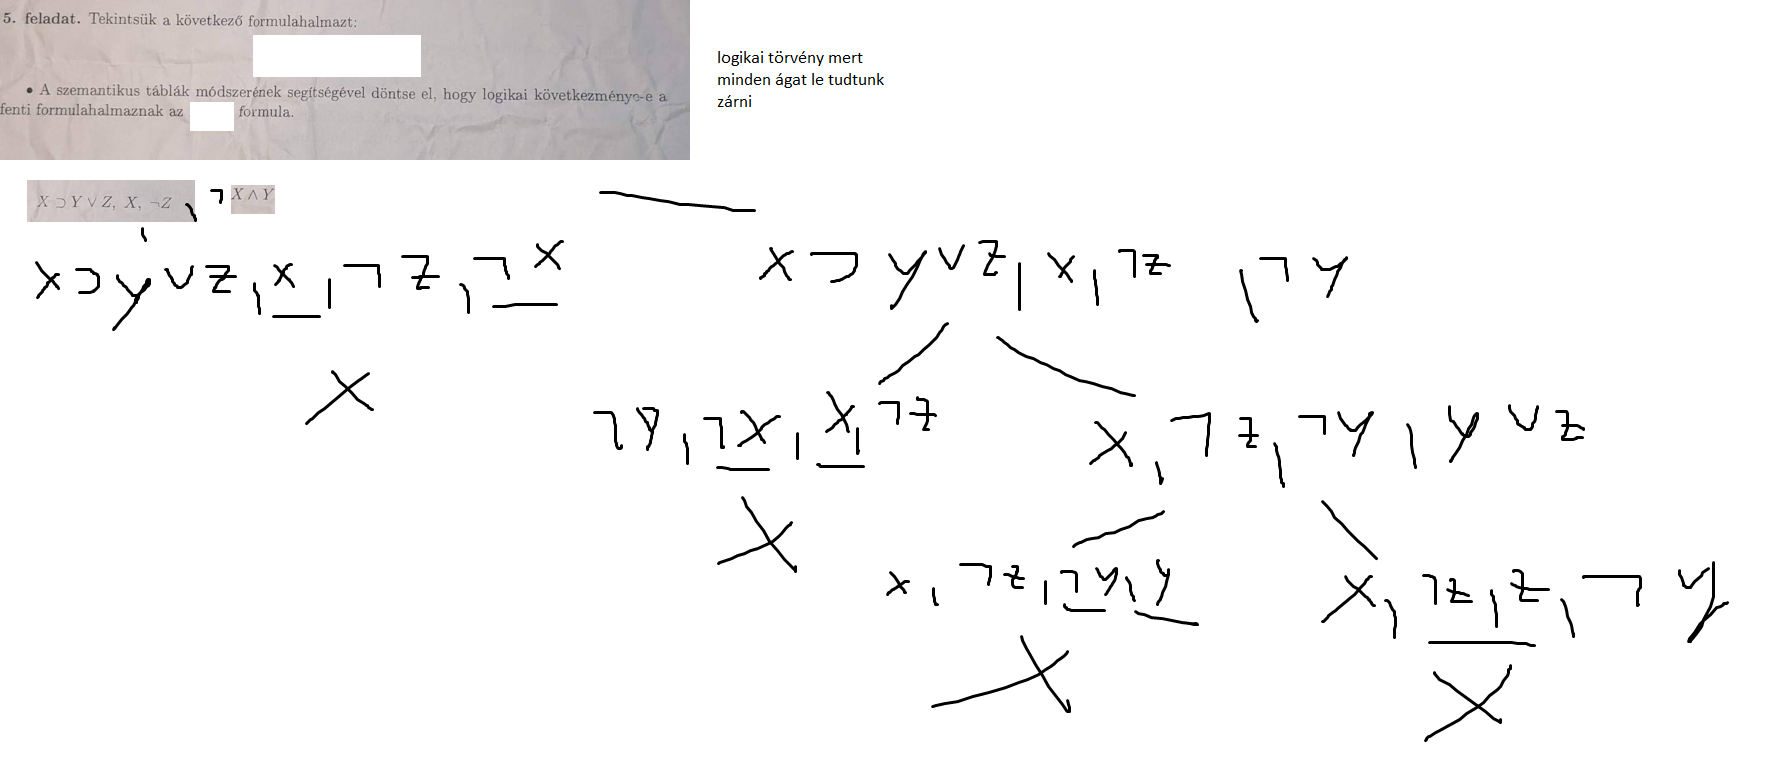 5. feladat. Tekintsük a következő formulahalmazt:
• A szemantikus táblák módszerének segítségével döntse el, hogy logikai következménye-e a
fenti formulahalmaznak az formula.
logikai törvény mert
minden ágat le tudtunk
zárni
X ⊃ Y ∨ Z, X, ¬Z , ¬ X ∧ Y
X ⊃ Y ∨ Z, X, ¬Z, ¬X
X ⊃ Y ∨ Z, X, ¬Z , ¬Y
X
¬Y, ¬X, X, ¬Z
X, ¬Z, ¬Y, Y ∨ Z
X
X, ¬Z, ¬Y, Y
X, ¬Z, Z, ¬Y
X
X